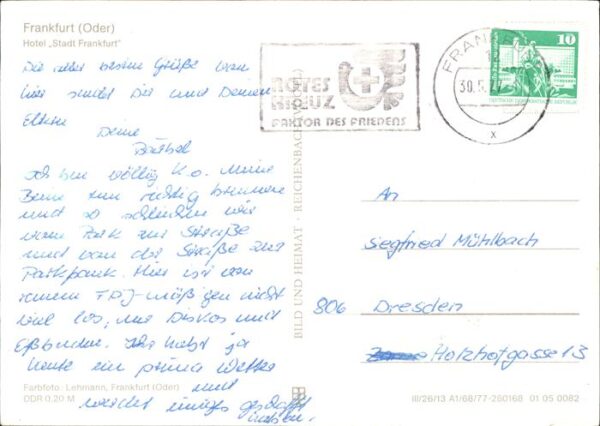 Frankfurt (Oder)
Hotel „Stadt Frankfurt"
Die aller besten Grüße von
hier sendet Dir und Deinen
Eltern
Deine
Bärbel
Ich bin völlig k.o. Meine
Beine tun richtig brennen
und so schleichen wir
vom Park zur Straße
und von der Straße zur
Parkbank. Hier ist von
FDJ-mäßigen nicht
viel los, nur Diskos und
Eßbuden. Ihr habt ja
heute ein prima Wetter
und
einiges geschafft
haben.
Farbfoto. Lehmann, Frankfurt (Oder)
DDR 0,20 M
BILD UND HEIMAT · REICHENBACH
ROTES
KREUZ
FAKTOR DES FRIEDENS
30.5.
x
10
DEUTSCHE DEMOKRATISCHE REPUBLIK
An
Siegfried Mühlbach
806 Dresden
Holzhofgasse 13
III/26/13 A1/68/77-260168 01 05 0082